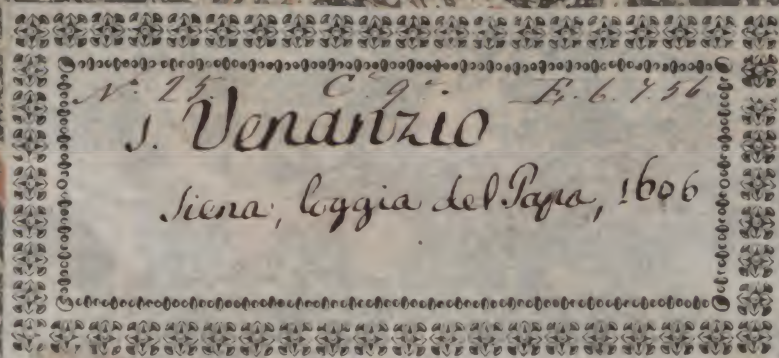 N. 25. C. 9. E. 6. 7. 56
S. Venanzio
Siena, loggia del Papa, 1606